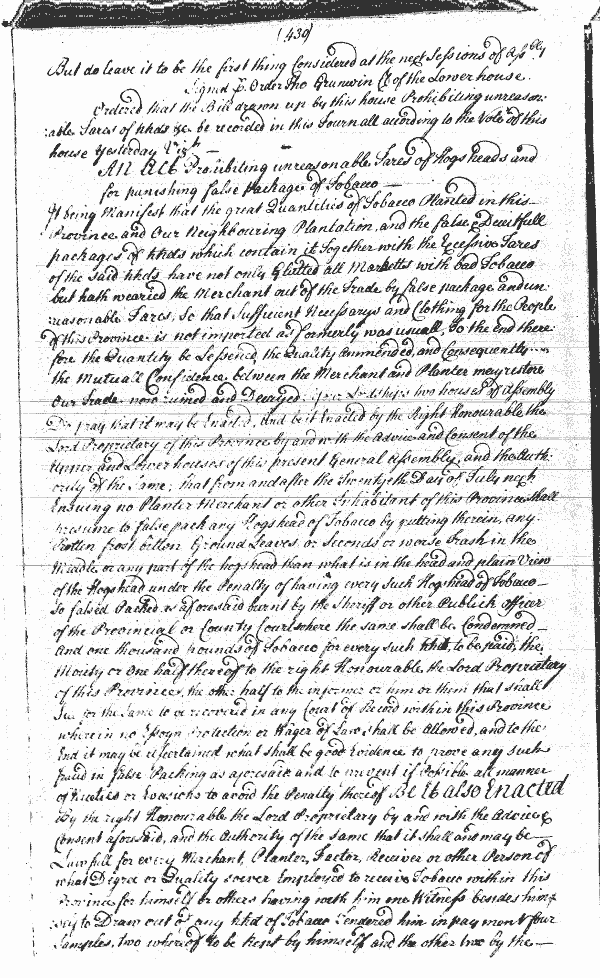 (439)
But do leave it to be the first thing Considered at the next Sessions of Assbly
Signed p. Order Tho Grunwin Cl of the Lower house.
Ordered that the Bill drawn up by this house Prohibiting unreason:
:able Tares of hhds &c. be recorded in this Journall according to the Vote of this
house Yesterday Vizt
An Act Prohibiting unreasonable Tares of Hogsheads and
for punishing false Package of Tobacco
It being Manifest that the great Quantities of Tobacco Planted in this
Province and Our Neighbouring Plantation, and the false & Deceitfull
packages of hhds which contain it Together with the Excessive Tares
of the Said hhds have not only Glutted all Marketts with bad Tobacco
but hath wearied the Merchant out of the Trade by false package and un:
reasonable Tares, So that Sufficient Necessarys and Clothing for the People
of this Province is not imported as formerly was usuall, To the End there:
fore the Quantity be Lessened, the Quality Ammended, and Consequently
the Mutuall Confidence between the Merchant and Planter may restore
Our Trade now ruined and Decayed: your Lordships two houses of Assembly
Do pray that it may be Enacted, And be it Enacted by the Right Honourable the
Lord Proprietary of this Province by and with the Advice and Consent of the
Upper and Lower houses of this present General Assembly, and the Auth:
ority of the Same, that from and after the Twentyeth Day of July next
Ensuing no Planter Merchant or other Inhabitant of this Province shall
presume to false pack any Hogshead of Tobacco by putting therein, any
Rotten frost bitten Ground Leaves, or Seconds or worse Trash in the
Middle, or any part of the hogshead than what is in the head and plain View
of the Hogshead under the Penalty of having every such Hogshead of Tobacco
So falsed Packed as aforesaid burnt by the Sheriff or other Publick officer
of the Provincial or County Court where the same shall be Condemned
And one thousand pounds of Tobacco for every such hhd, to be paid, the
Moiety or One half thereof to the right Honourable the Lord Proprietary
of this Province, the other half to the informer or him or them that shall
Sue for the Same to be recovered in any Court of Record within this Province
wherein no Essoyn Protection or Wager of Law shall be Allowed, and to the
End it may be ascertained what shall be good Evidence to prove any such
fraud in false Packing as aforesaid and to prevent if Possible all manner
of Niceties or Evasions to avoid the Penalty thereof Be It also Enacted
By the right Honourable the Lord Proprietary by and with the Advice &
Consent aforesaid, and the Authority of the same that it shall and may be
Lawfull for every Merchant, Planter, Factor, Receiver or other Person of
what Degree or Quality soever Employed to receive Tobacco within this
Province for himself or others having with him one Witness besides himse
to Draw out of any hhd of Tobacco Tendered him in payment four
Samples, two whereof to be Kept by himself and the other two by the